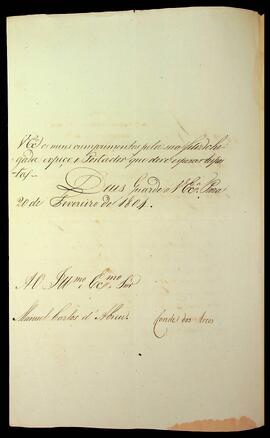 V Ex.ª os meus cumprimentos pela sua feliz che
gada expeço o Portador que deve esperar respos
tas.
Deus Guarde a V Ex.ª Pará
20 de Fevereiro de 1804.
Ao Ill.mo e Ex.mo Snr
Manuel Carlos d'Abreu
Conde dos Arcos